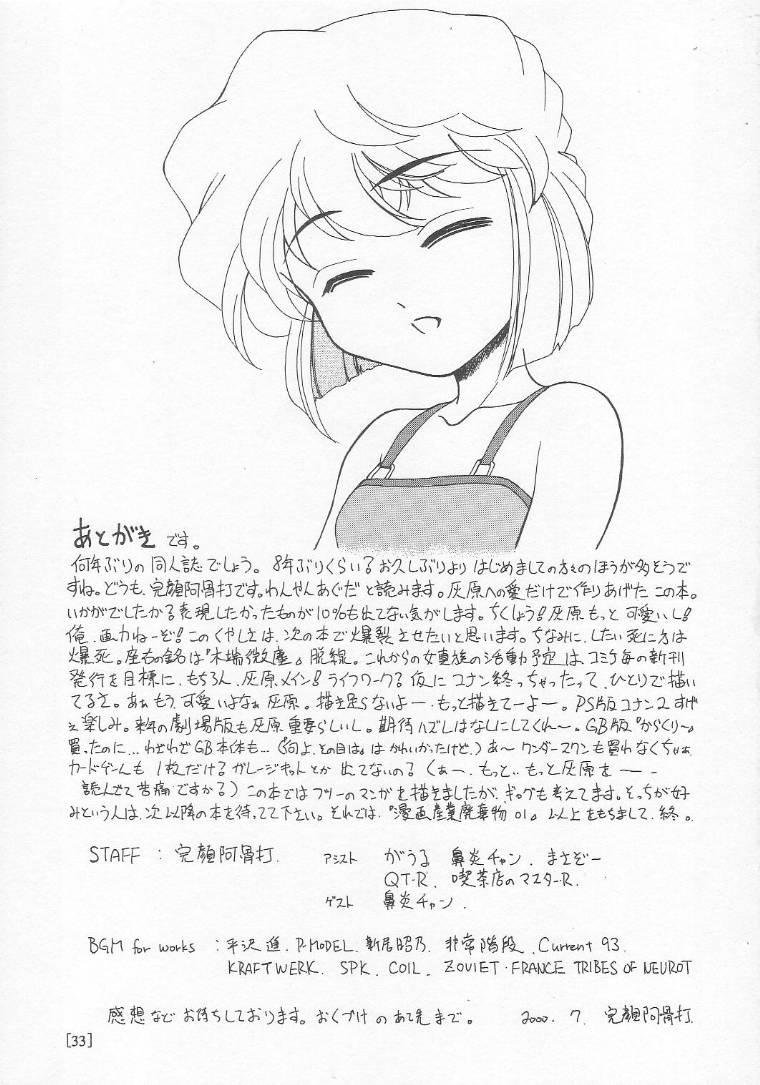 あとがき です。
何年ぶりの同人誌でしょう。8年ぶりくらい?お久しぶりより はじめましての方々のほうが多そうで
すね。どうも、完顔阿骨打です。わんやんあぐだと読みます。灰原への愛だけで作りあげた この本。
いかがでしたか?表現したかったものが10%も出てない気がします。ちくしょう!灰原もっと 可愛いし!
俺、画力ねーぞ!このくやしさは、次の本で爆裂させたいと思います。ちなみに、したい死に方は
爆死。座右の銘は『木端微塵』。脱線。これからの女真族の活動予定は、コミケ毎の新刊
発行を目標に、もちろん、灰原メイン!ライフワーク?仮に コナン終っちゃったって、ひとりで描い
てるさ。あぁもう、可愛いよなぁ灰原。描き足らないよー、もっと描きてーよー。PS版コナン2 すげ
ぇ楽しみ。来年の劇場版も灰原 重要らしいし。期待ハズレはなしにしてくれ〜。GB版『からくり〜』
買ったのに…わざわざGB本体も…(『何よ、その目は』は かわいかったけど。)あ〜 ワンダースワンも買わなくちゃぁ
カードゲームも 1枚だけ?ガレージキットとか 出てないの?(あー、もっと、もっと灰原をーー
読んでて苦痛ですか?)この本ではフツーのマンガを描きましたが、ギャグも考えてます。そっちが好
みという人は、次以降の本を待ってて下さい。それでは、『漫画産業廃棄物01』以上をもちまして、終。
STAFF : 完顔阿骨打. アシスト がうる 鼻炎チャン. まさぞー
QT-R. 喫茶店のマスターR.
ゲスト 鼻炎チャン.
BGM for works : 平沢進. P-MODEL. 新居昭乃. 非常階段. Current 93.
KRAFTWERK. SPK. COIL. ZOVIET・FRANCE TRIBES OF NEUROT
感想など お待ちしております。おくづけ の あて先まで。 2000. 7. 完顔阿骨打.
[33]